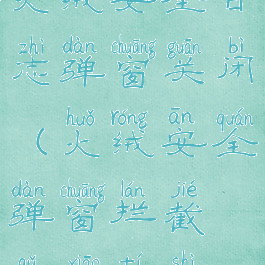 火绒安全日
zhì dàn chuāng guān bì
志弹窗关闭
huǒ róng ān quán
（火绒安全
dàn chuāng lán jié
弹窗拦截